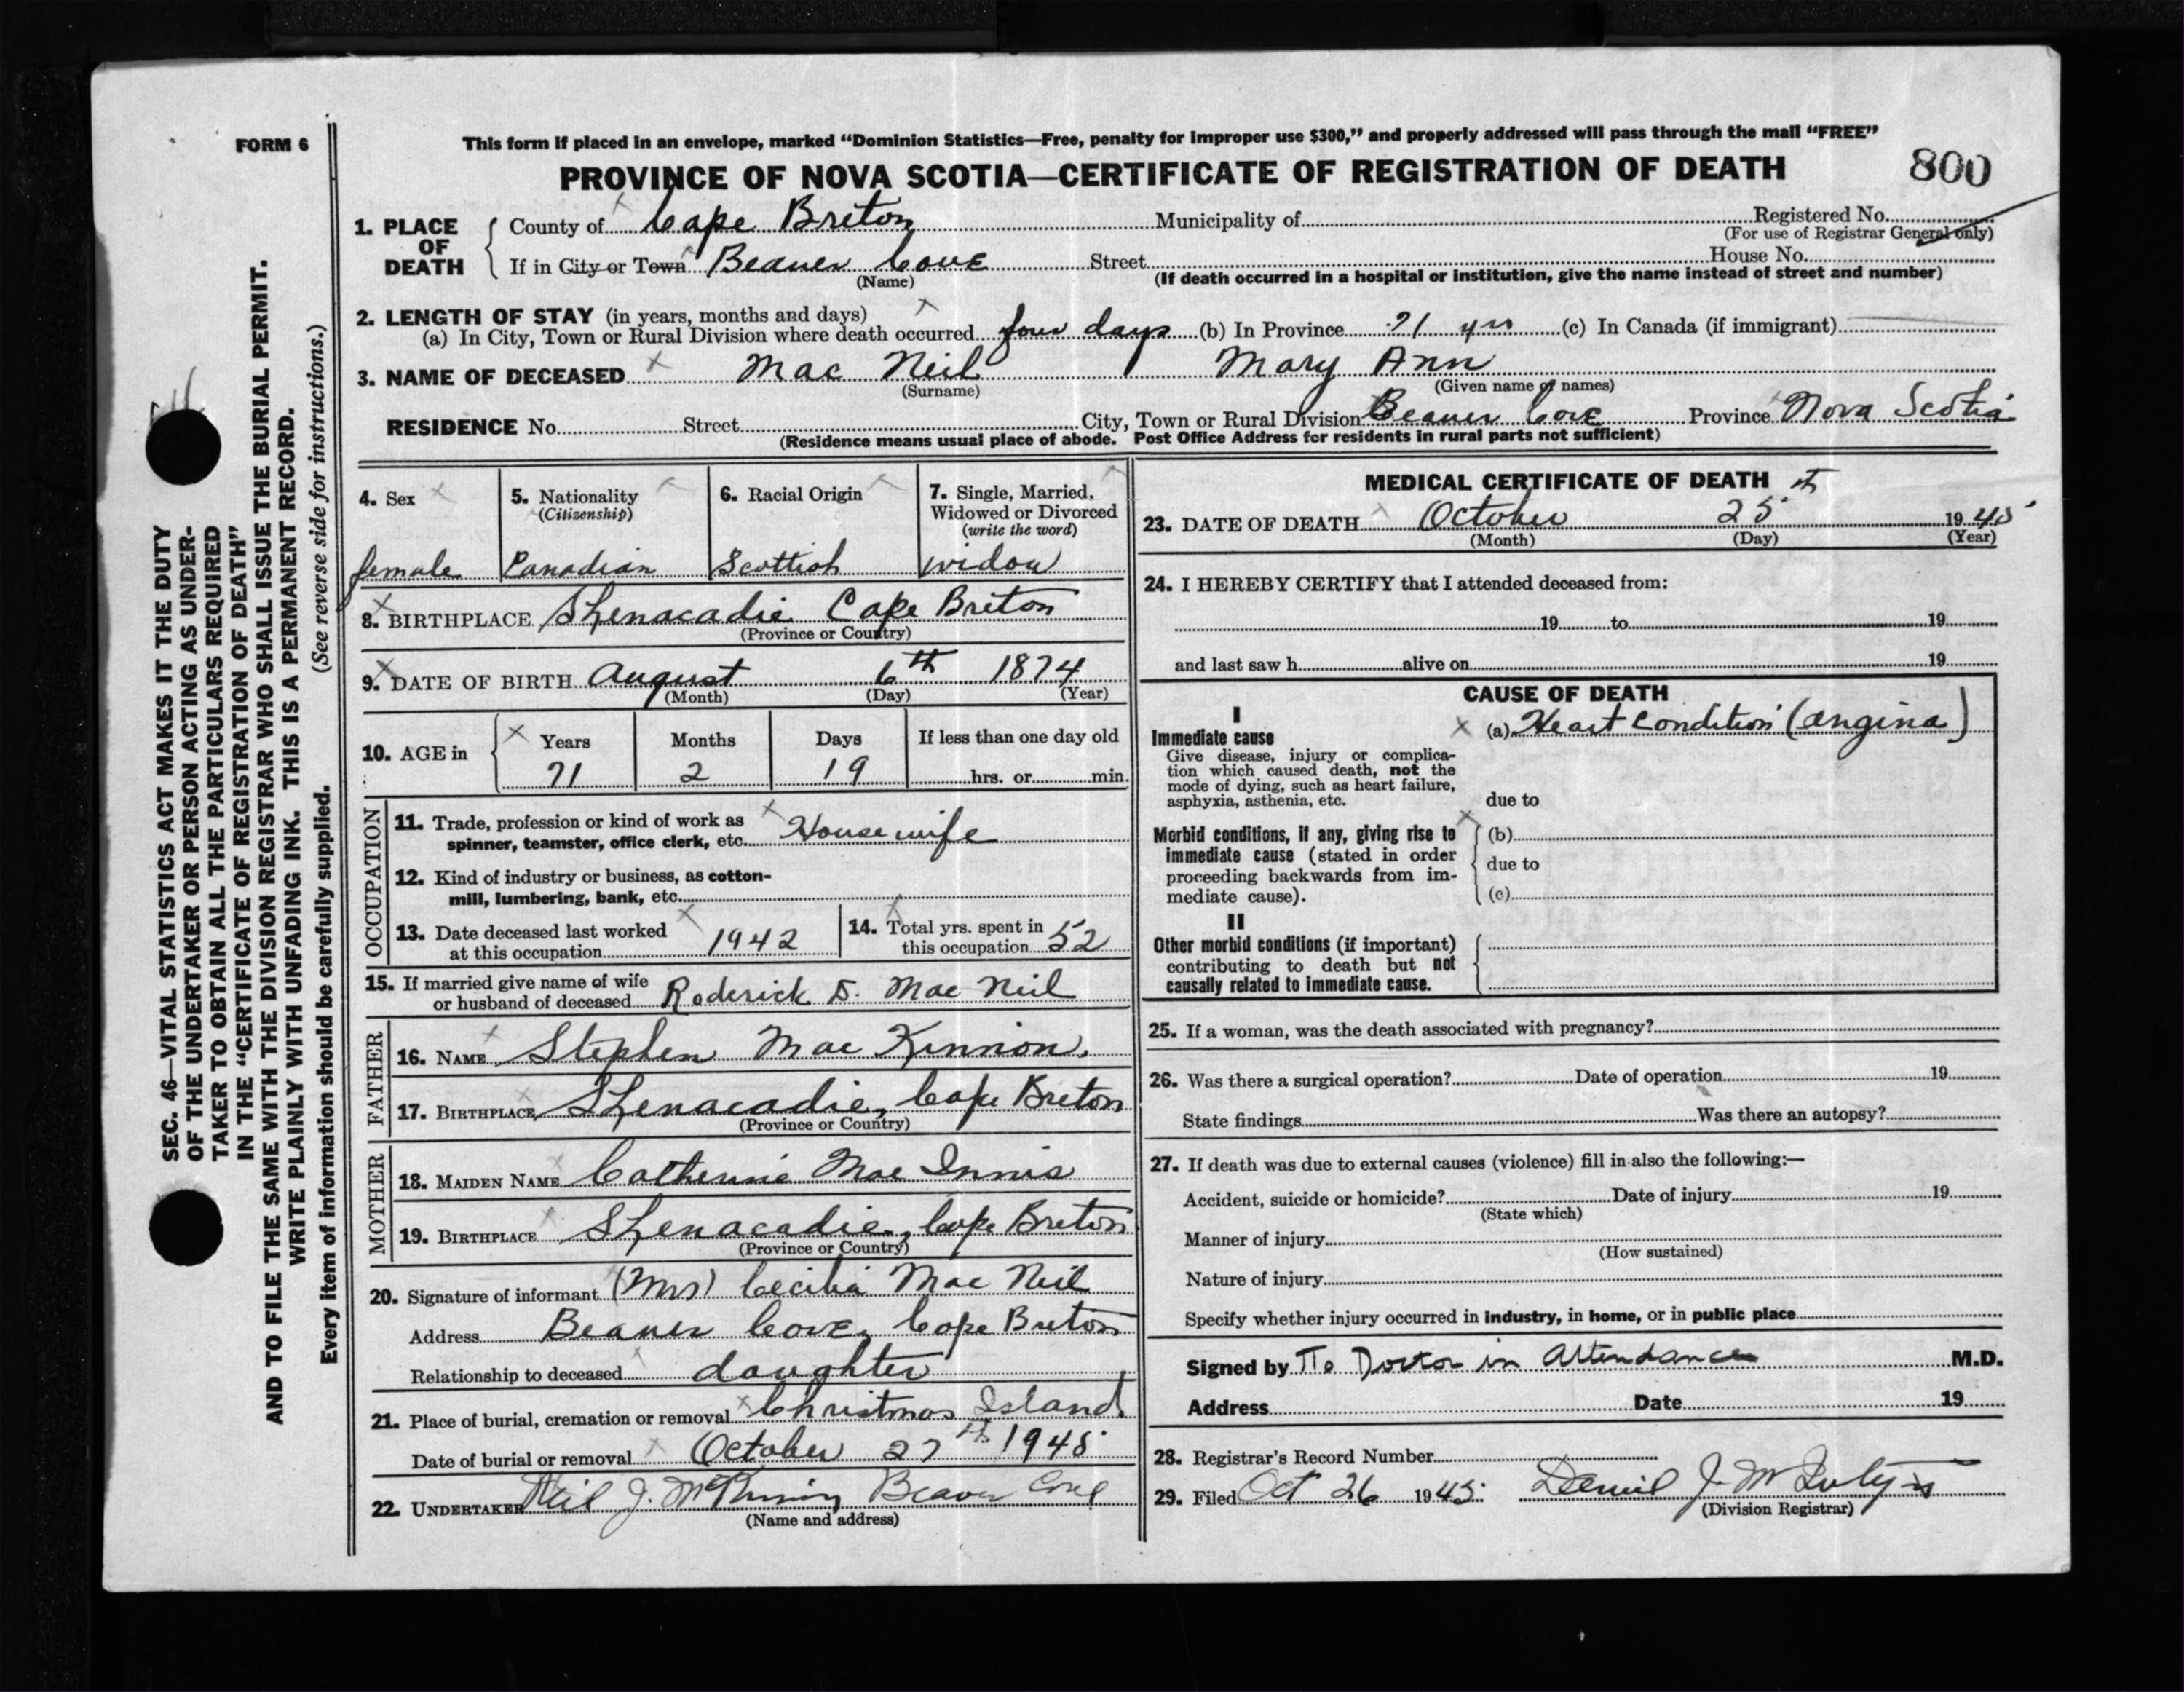 FORM 6
This form if placed in an envelope, marked “Dominion Statistics—Free, penalty for improper use $300,” and properly addressed will pass through the mail “FREE”
PROVINCE OF NOVA SCOTIA—CERTIFICATE OF REGISTRATION OF DEATH
800
1. PLACE OF DEATH
County of Cape Breton Municipality of Registered No.
(For use of Registrar General only)
If in City or Town Beaver Cove Street House No.
(Name) (If death occurred in a hospital or institution, give the name instead of street and number)
2. LENGTH OF STAY (in years, months and days)
(a) In City, Town or Rural Division where death occurred four days (b) In Province 71 yrs (c) In Canada (if immigrant)
3. NAME OF DECEASED Mac Neil Mary Ann
(Surname) (Given name of names)
RESIDENCE No. Street City, Town or Rural Division Beaver Cove Province Nova Scotia
(Residence means usual place of abode. Post Office Address for residents in rural parts not sufficient)
4. Sex
female
5. Nationality
(Citizenship)
Canadian
6. Racial Origin
Scottish
7. Single, Married,
Widowed or Divorced
(write the word)
widow
8. BIRTHPLACE Shenacadie Cape Breton
(Province or Country)
9. DATE OF BIRTH August 6th 1874
(Month) (Day) (Year)
10. AGE in Years Months Days If less than one day old
71 2 19 hrs. or min.
OCCUPATION
11. Trade, profession or kind of work as
spinner, teamster, office clerk, etc. Housewife
12. Kind of industry or business, as cotton-
mill, lumbering, bank, etc.
13. Date deceased last worked
at this occupation 1942
14. Total yrs. spent in
this occupation 52
15. If married give name of wife
or husband of deceased Roderick D. Mac Neil
FATHER
16. NAME Stephen Mac Kinnon.
17. BIRTHPLACE Shenacadie, Cape Breton
(Province or Country)
MOTHER
18. MAIDEN NAME Catherine Mac Innis
19. BIRTHPLACE Shenacadie, Cape Breton
(Province or Country)
20. Signature of informant (Mrs) Cecilia Mac Neil
Address Beaver Cove, Cape Breton
Relationship to deceased daughter
21. Place of burial, cremation or removal Christmas Island
Date of burial or removal October 27th 1945
22. UNDERTAKER Neil J. McKinnon Beaver Cove
(Name and address)
MEDICAL CERTIFICATE OF DEATH
23. DATE OF DEATH October 25th 1945
(Month) (Day) (Year)
24. I HEREBY CERTIFY that I attended deceased from:
19 to 19
and last saw h alive on 19
CAUSE OF DEATH
I
Immediate cause
Give disease, injury or complica-
tion which caused death, not the
mode of dying, such as heart failure,
asphyxia, asthenia, etc.
(a) Heart Condition (angina)
due to
Morbid conditions, if any, giving rise to
immediate cause (stated in order
proceeding backwards from im-
mediate cause).
(b)
due to
(c)
II
Other morbid conditions (if important)
contributing to death but not
causally related to immediate cause.
25. If a woman, was the death associated with pregnancy?
26. Was there a surgical operation? Date of operation 19
State findings Was there an autopsy?
27. If death was due to external causes (violence) fill in also the following:—
Accident, suicide or homicide? Date of injury 19
(State which)
Manner of injury
(How sustained)
Nature of injury
Specify whether injury occurred in industry, in home, or in public place
Signed by No Doctor in Attendance M.D.
Address Date 19
28. Registrar's Record Number
29. Filed Oct 26 1945
(Division Registrar)
SEC. 46—VITAL STATISTICS ACT MAKES IT THE DUTY
OF THE UNDERTAKER OR PERSON ACTING AS UNDER-
TAKER TO OBTAIN ALL THE PARTICULARS REQUIRED
IN THE “CERTIFICATE OF REGISTRATION OF DEATH”
AND TO FILE THE SAME WITH THE DIVISION REGISTRAR WHO SHALL ISSUE THE BURIAL PERMIT.
WRITE PLAINLY WITH UNFADING INK. THIS IS A PERMANENT RECORD.
(See reverse side for instructions.)
Every item of information should be carefully supplied.